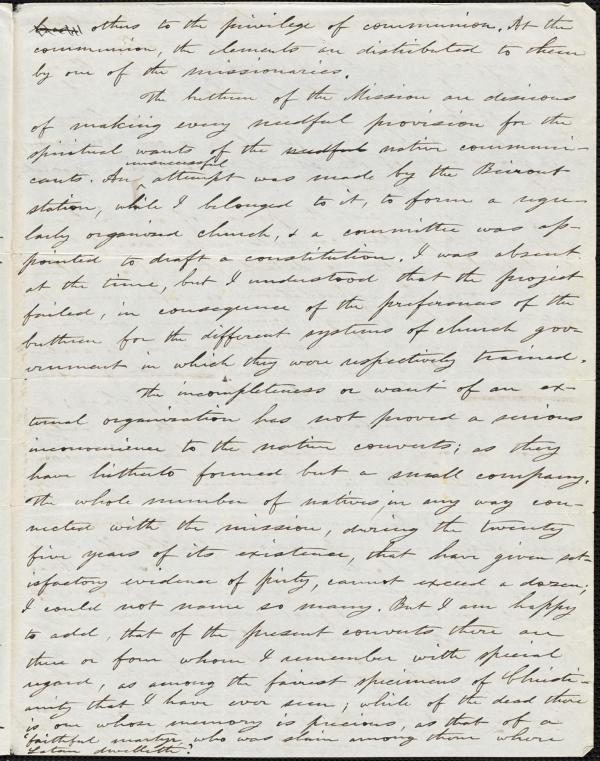 others to the privilege of communion. At the
communion, the elements are distributed to them
by one of the missionaries.
The brethren of the Mission are desirous
of making every needful provision for the
spiritual wants of the needful native communi-
cants. An unsuccessful attempt was made by the Beirout
station, while I belonged to it, to form a regu-
larly organized church, & a committee was ap-
pointed to draft a constitution. I was absent
at the time, but I understood that the project
failed, in consequence of the preferences of the
brethren for the different systems of church gov-
ernment in which they were respectively trained.
The incompleteness or want of an ex-
ternal organization has not proved a serious
inconvenience to the native converts; as they
have hitherto formed but a small company.
The whole number of natives, in any way con-
nected with the mission, during the twenty
five years of its existence, that have given sat-
isfactory evidence of piety, cannot exceed a dozen;
I could not name so many. But I am happy
to add, that of the present converts there are
three or four whom I remember with special
regard, as among the fairest specimens of Christi-
anity that I have ever seen; while of the dead there
is one whose memory is precious, as that of a
"faithful martyr, who was slain among them where
Satan dwelleth."